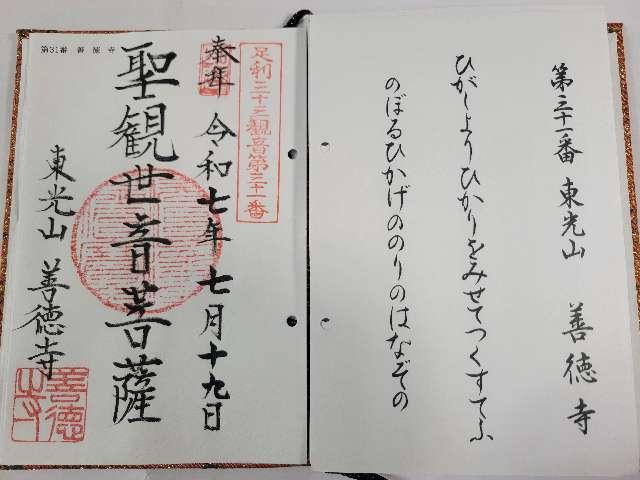 第三十一番 東光山 善徳寺
ひがしよりひかりをみせてつくすてふ
のぼるひかげののりのはなぞの
第31番 善徳寺
足利三十三観音第三十一番
奉拝 令和七年七月十九日
聖観世音菩薩
東光山 善徳寺
善徳寺